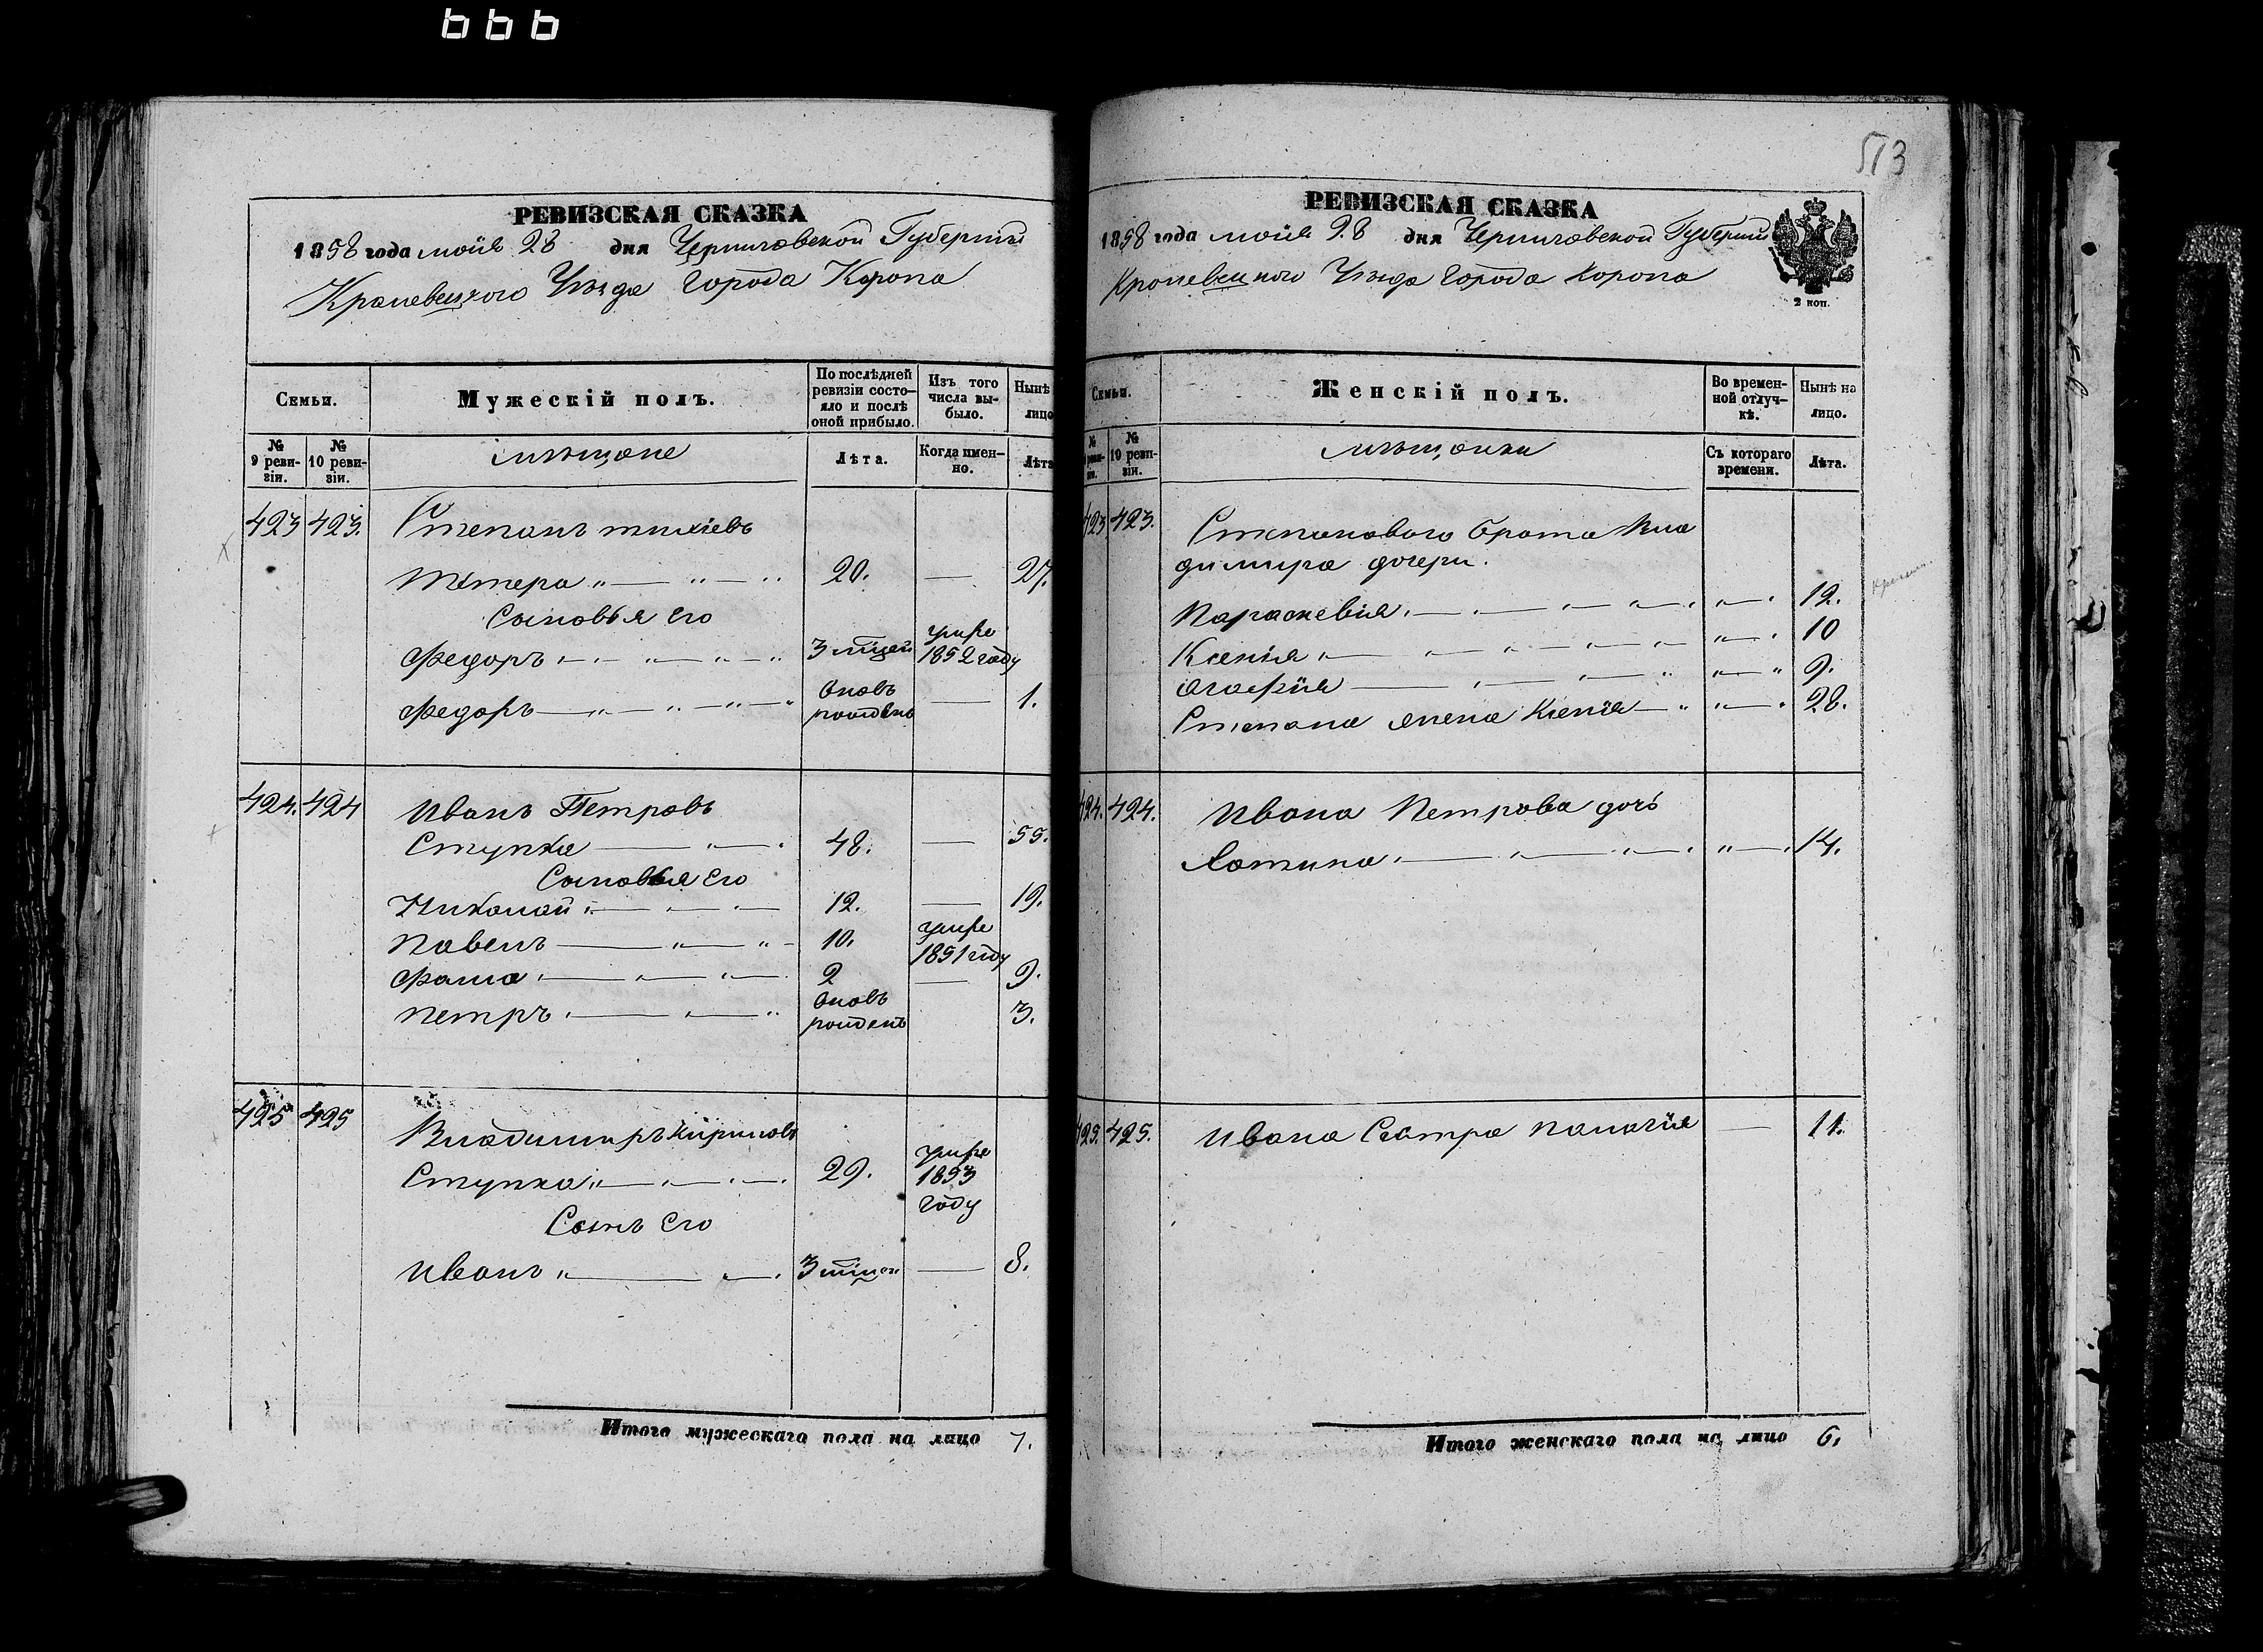 666
РЕВИЗСКАЯ СКАЗКА
1858 года мая 28 дня Черниговской Губерніи
Кролевецкого Уѣзда Города Коропа
Семьи.
Мужескій полъ.
По послѣдней ревизіи состояло и послѣ оной прибыло.
Изъ того числа выбыло.
Нынѣ лицо
№ 9 ревизіи.
№ 10 ревизіи.
мѣщане
Лѣта.
Когда именно.
Лѣта
423 423. Степанъ
20. — 27.
Сыновья его
Федоръ 3 мѣсяц умре 1852 году
Федоръ вновь рожденъ — 1.
424. 424 Иванъ Петровъ
Ступка 48. — 55.
Сыновья его
Николай 12. — 19.
Павелъ 10. умре 1851 году
Фома 2 — 9.
Петръ вновь рожденъ 3.
425 425 Владимиръ Кириловъ
Ступка 29. умре 1853 году
Сынъ его
Иванъ 3 мѣсяц — 8.
Итого мужескаго пола на лицо 7.
513
РЕВИЗСКАЯ СКАЗКА
1858 года мая 28 дня Черниговской Губерніи
Кролевецкого Уѣзда Города Коропа
2 коп.
Семьи.
Женскій полъ.
Во временной отлучкѣ.
Нынѣ на лицо.
№ 10 ревизіи.
мѣщанки
Съ котораго времени.
Лѣта.
423 423. Степанового брата Вла
димира дочери.
Параскевія 12.
Ксенія 10
Агафія 9.
Степана жена Ксенія 28.
424. 424. Ивана Петрова дочь
14.
425. 425. Ивана Сестра Палагія — 11.
Итого женскаго пола на лицо 6.